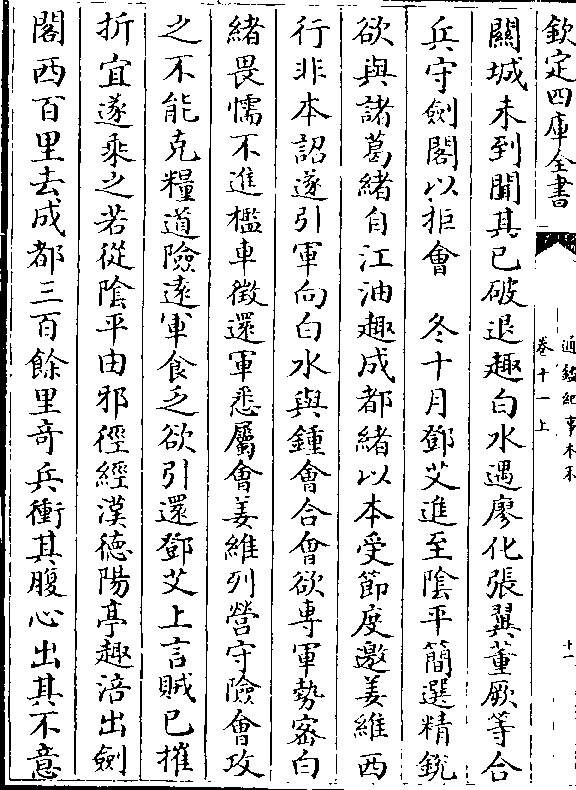 欽定四庫全書
通鑑紀事本末
卷十一上
十一
關城未到聞其已破退趣白水遇廖化張翼董厥等合
兵守劍閣以拒會　冬十月鄧艾進至陰平簡選精銳
欲與諸葛緒自江油趣成都緒以本受節度邀姜維西
行非本詔遂引軍向白水與鍾會合會欲專軍勢密白
緒畏懦不進檻車徵還軍悉屬會姜維列營守險會攻
之不能克糧道險遠軍食乏欲引還鄧艾上言賊已摧
折宜遂乘之若從陰平由邪徑經漢德陽亭趣涪出劍
閣西百里去成都三百餘里奇兵衝其腹心出其不意